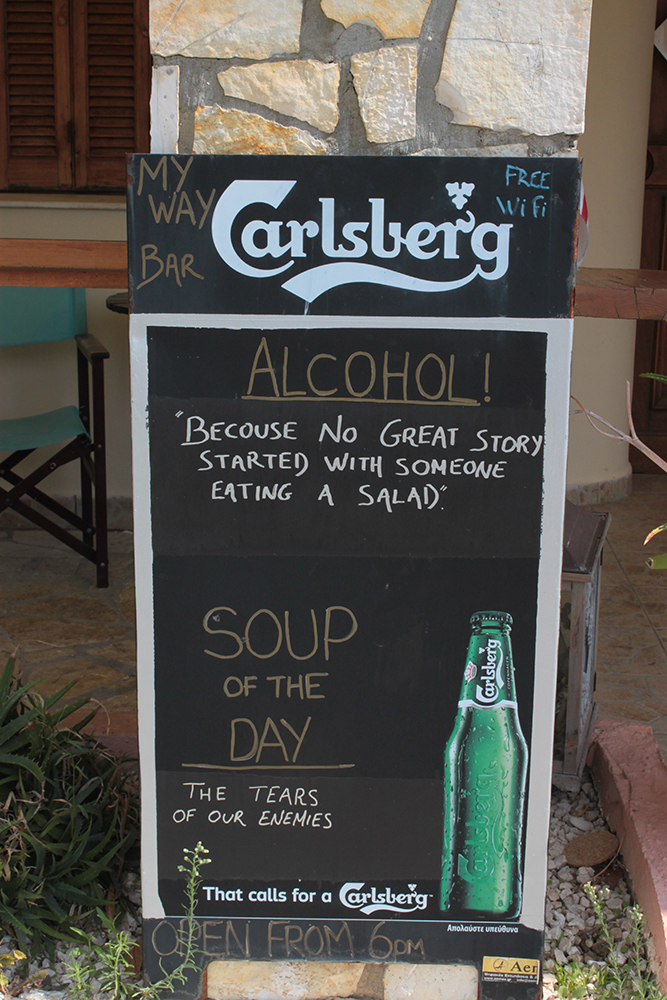 MY
WAY
BAR
Carlsberg
FREE
WiFi
ALCOHOL!
"BECOUSE NO GREAT STORY
STARTED WITH SOMEONE
EATING A SALAD".
SOUP
OF THE
DAY
THE TEARS
OF OUR ENEMIES
Carlsberg
COPENHAGEN
Carlsberg
That calls for a Carlsberg
Απολαύστε υπεύθυνα
OPEN FROM 6PM
Aer